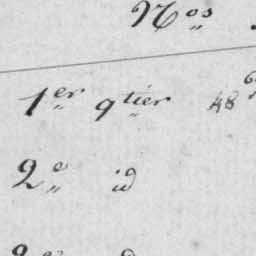 Nos
1er qtier 48
2e id